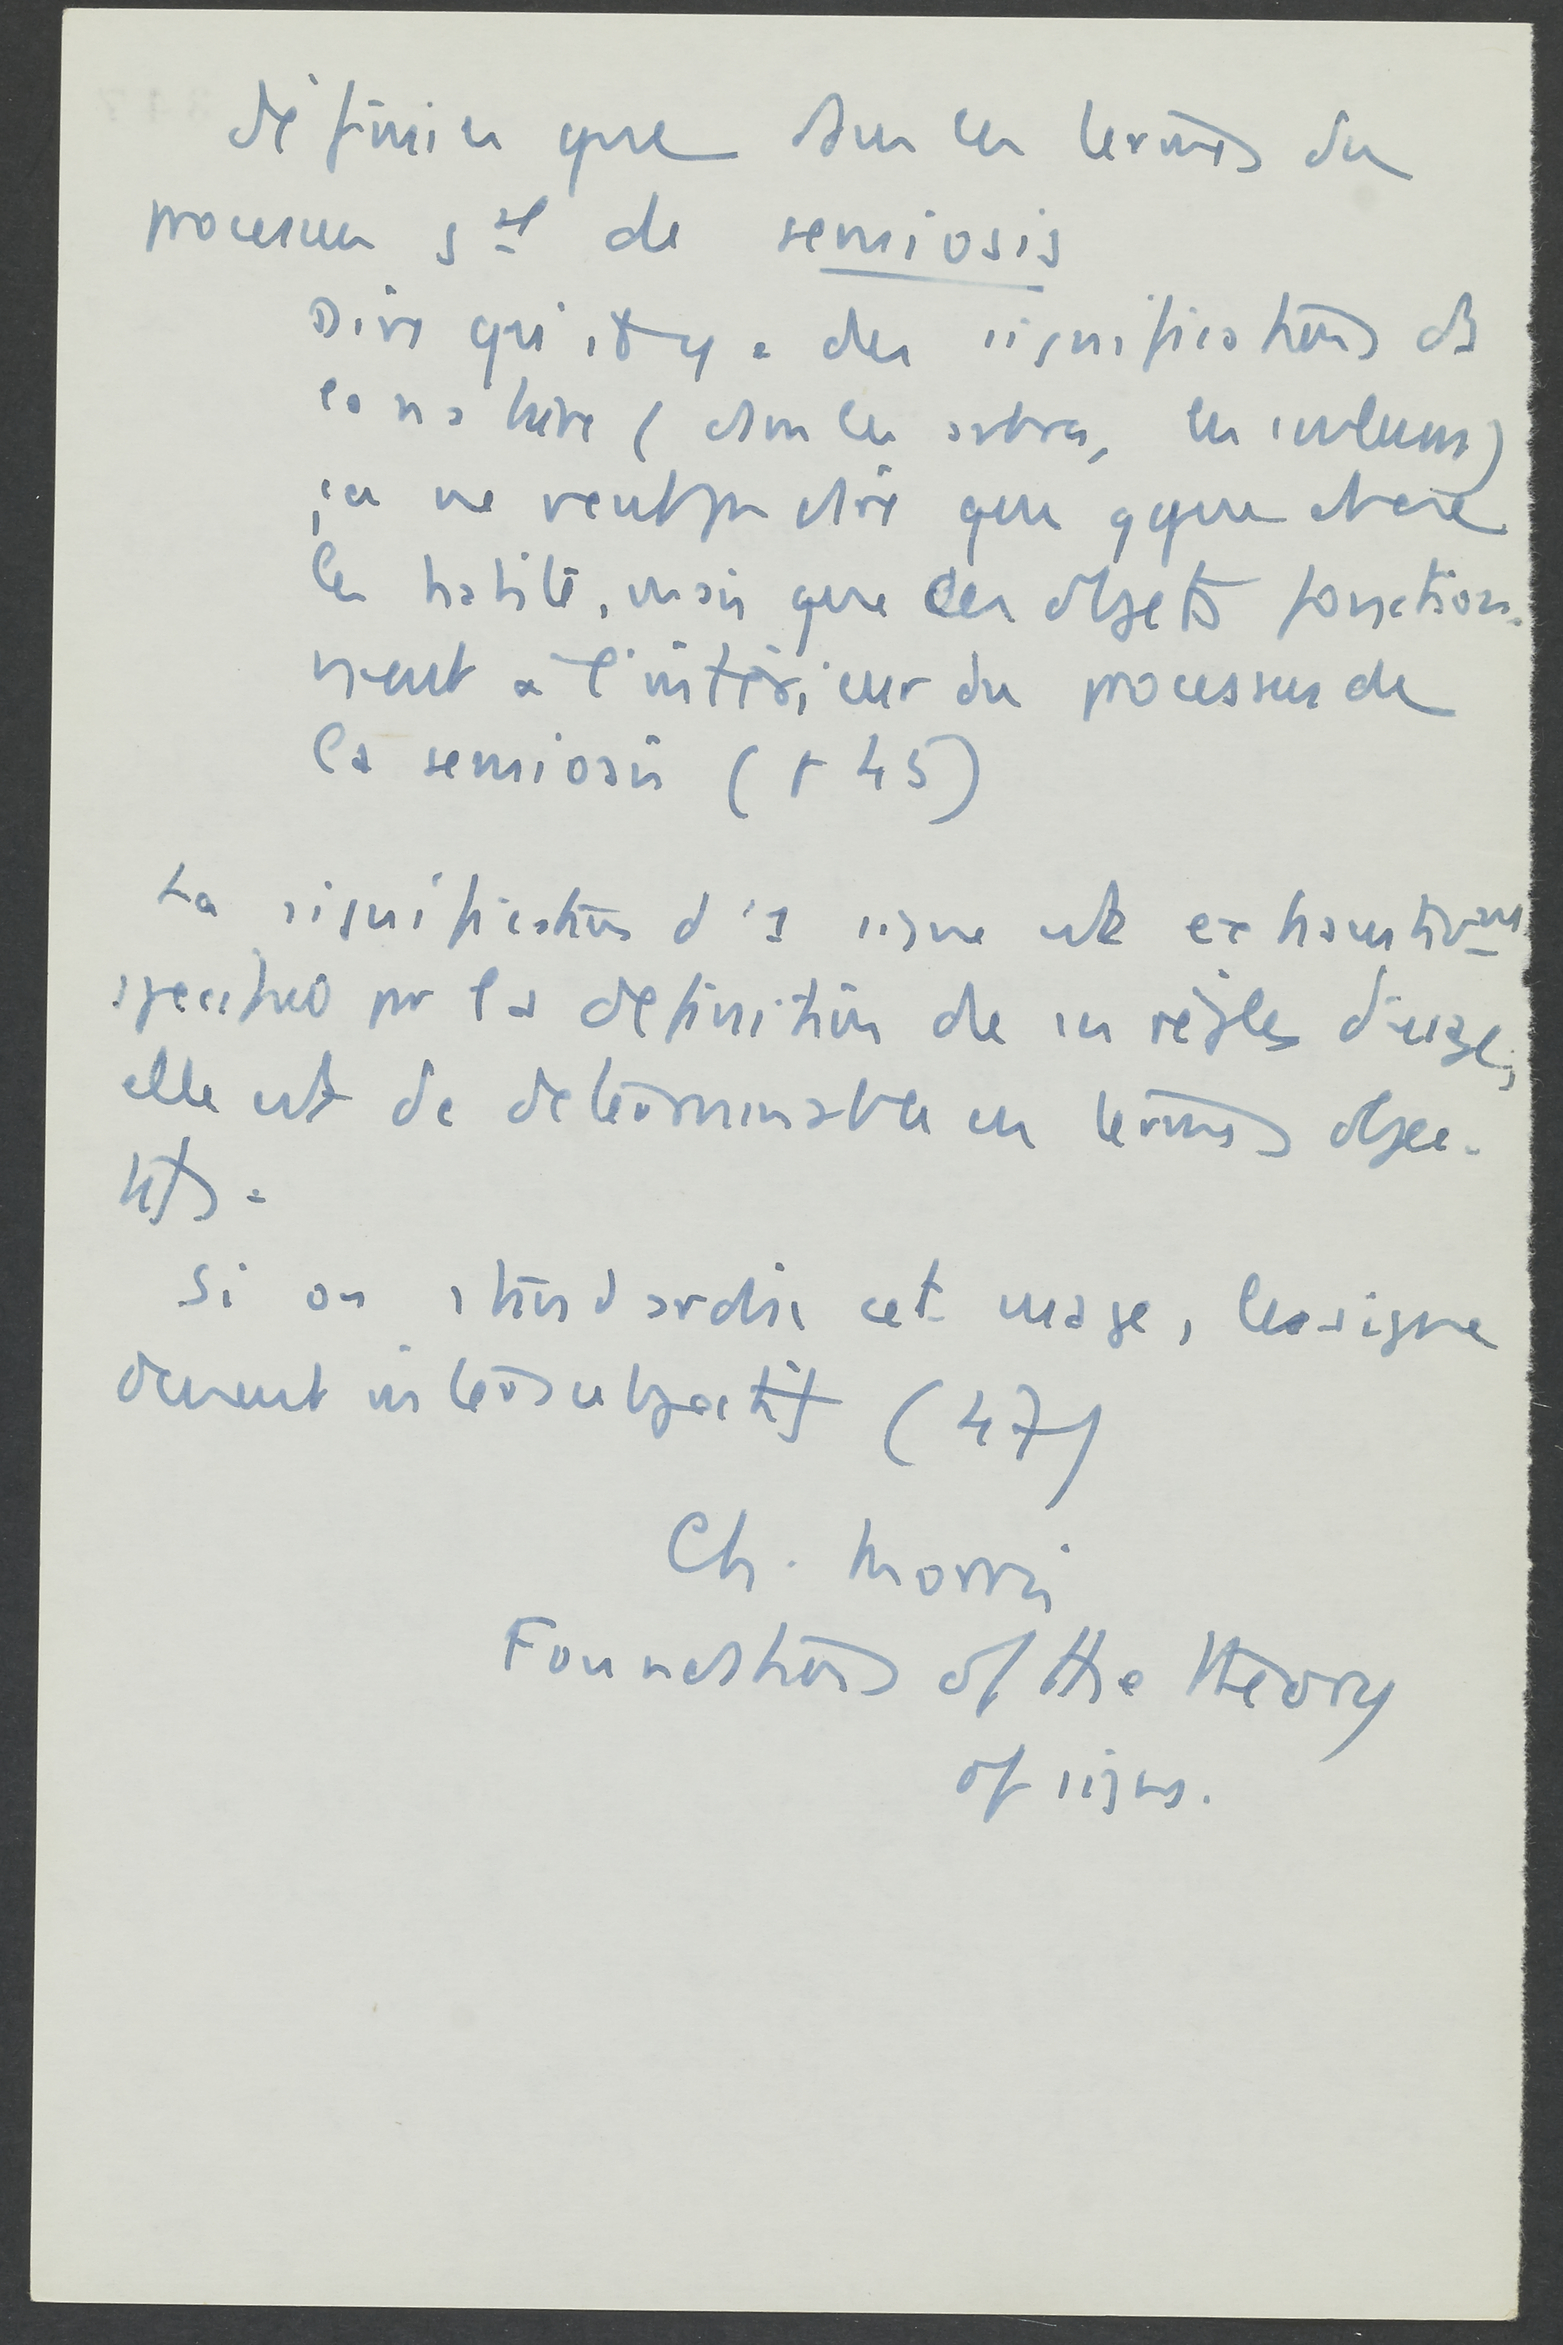 définies que dans les termes du
processus gal de semiosis
Dire qu'il y a des significations ds
la nature (dans les arbres, les
ça ne veut pas dire que
les habite, mais que ces objets fonction-
nent à l'intérieur du processus de
la semiosis (p 45)
La signification d'1 signe est exhaustivemt
specifiée par la définition de ses règles d'usage,
elle est dc déterminable en termes objec-
tifs.
Si on standardise cet usage, le signe
devient intersubjectif (47)
Ch. Morris
Foundations of the theory
of signs.